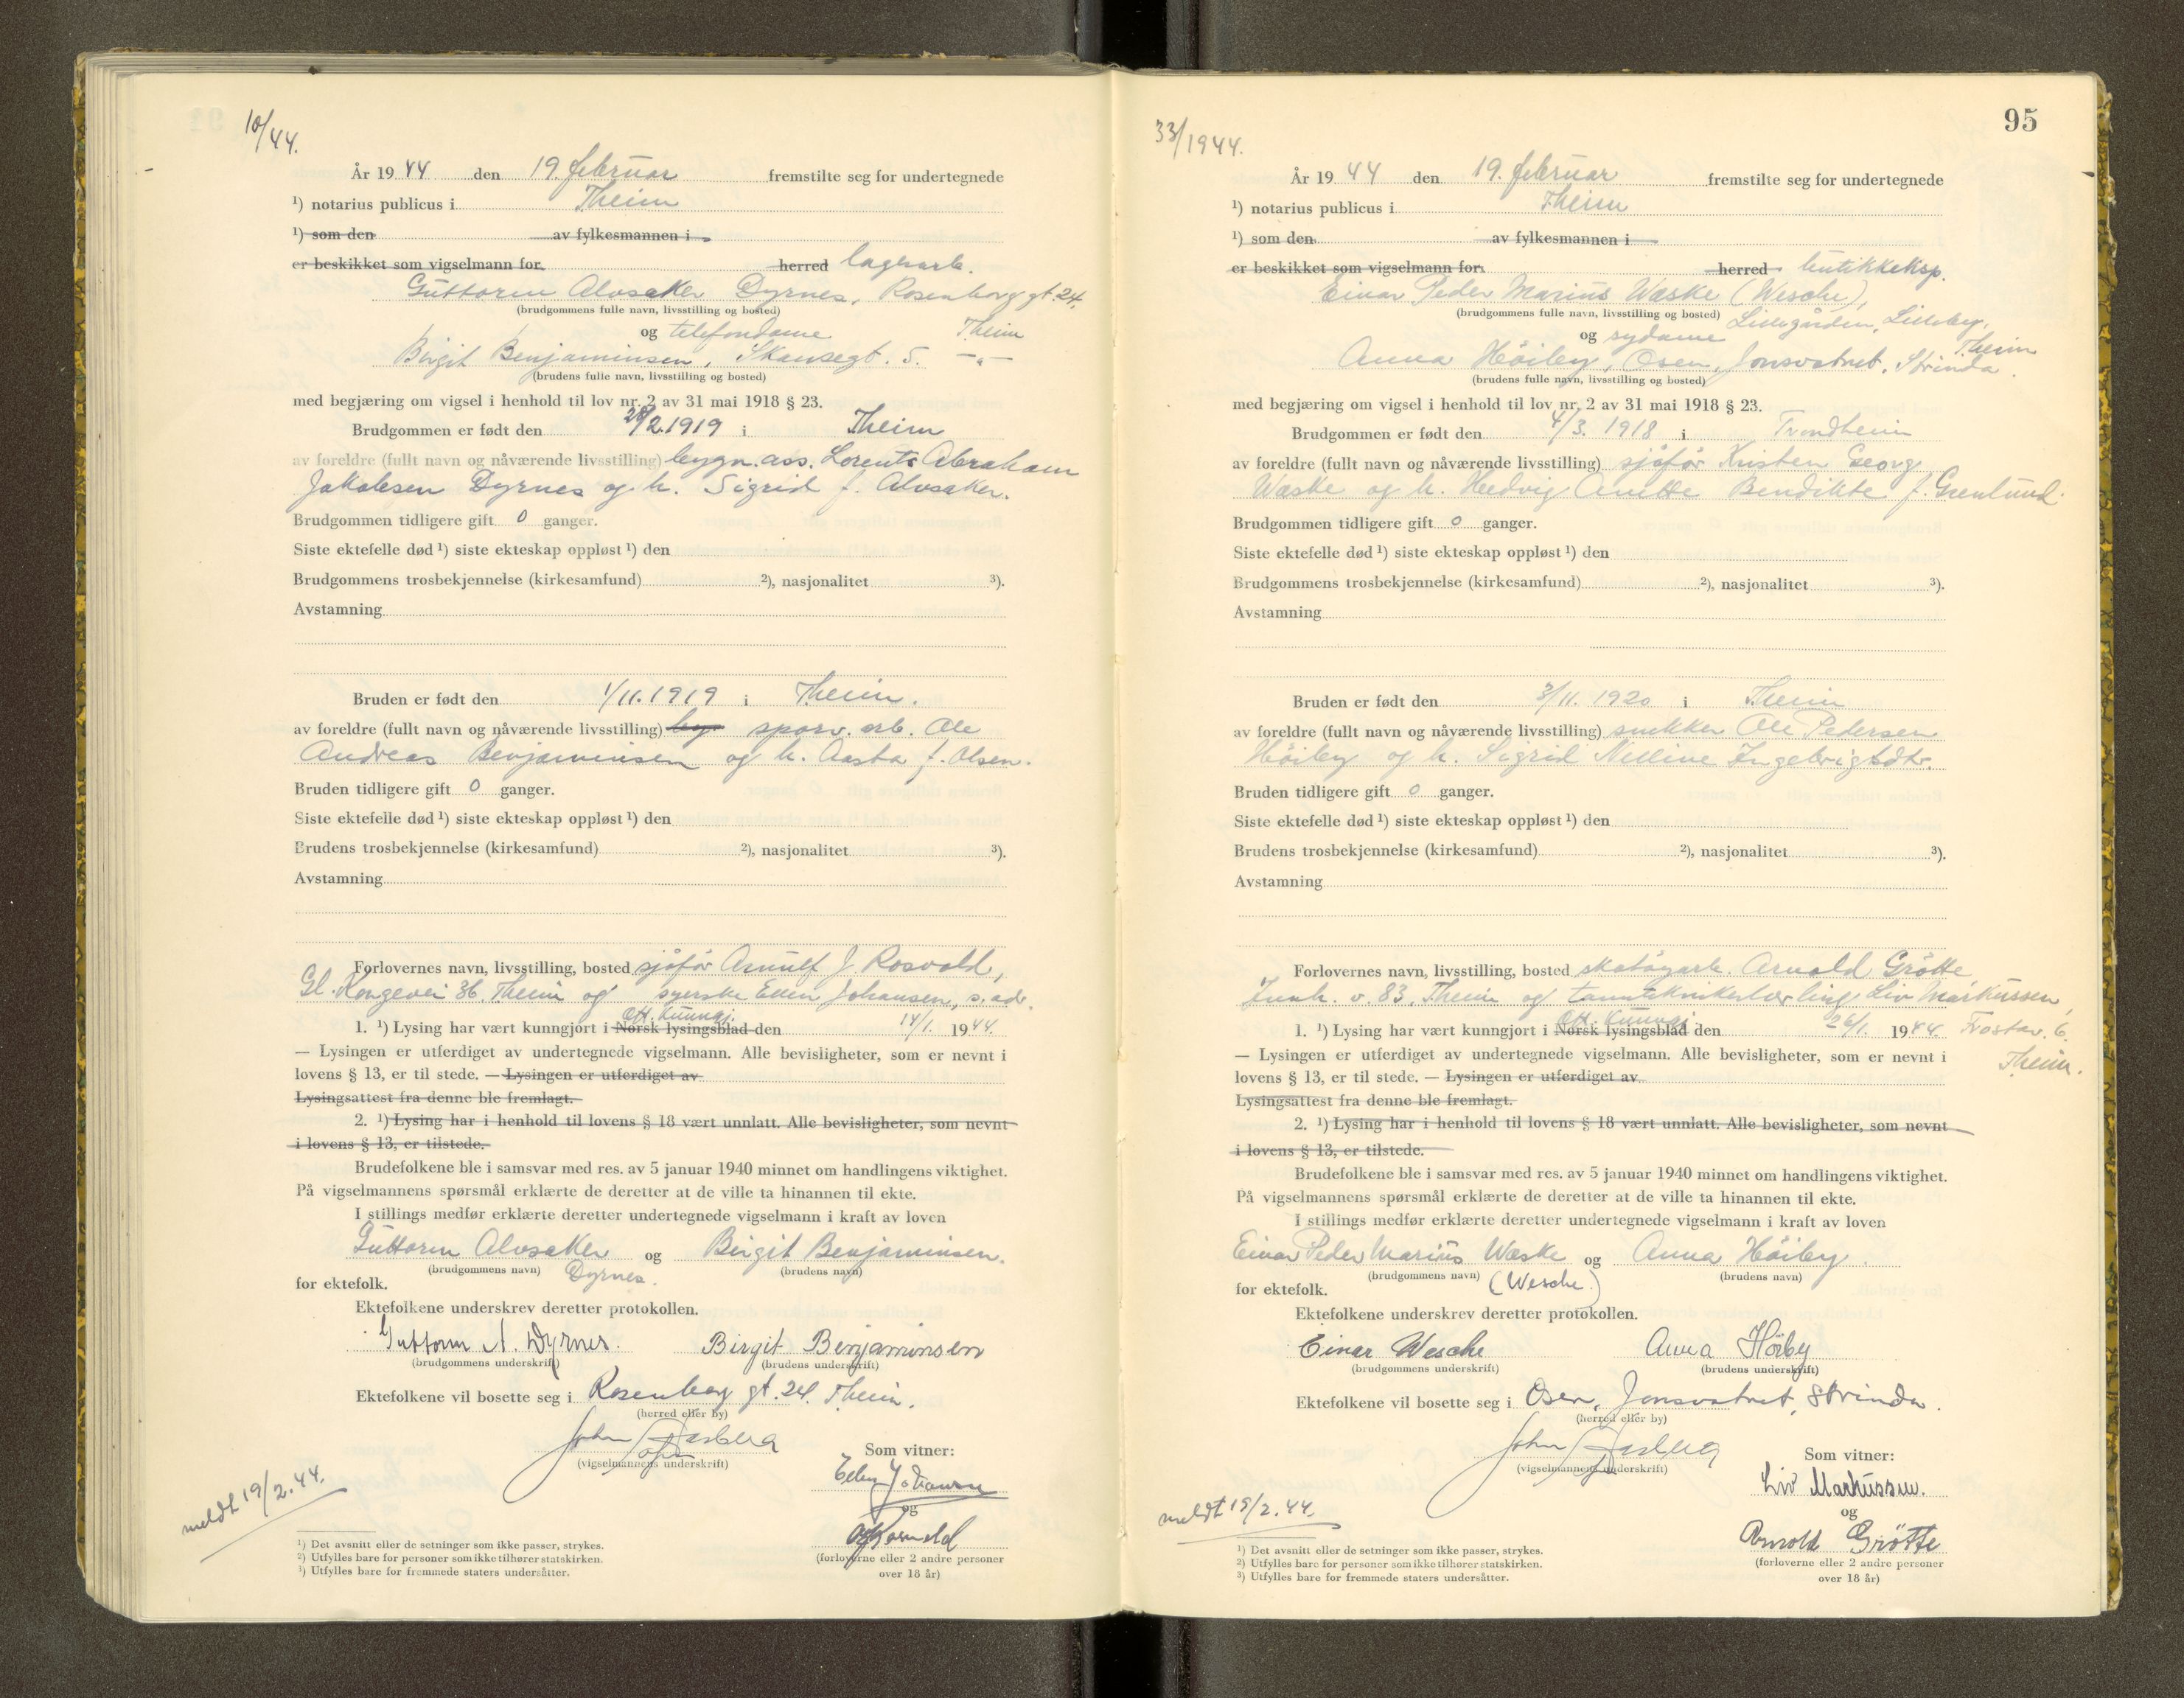 10/44.
År 19 44 den 19. februar fremstilte seg for undertegnede
¹) notarius publicus i Theim
¹) som den av fylkesmannen i
er beskikket som vigselmann for herred lagerarb.
Guttorm Alvsaker Dyrnes, Rosenborg gt. 24,
(brudgommens fulle navn, livsstilling og bosted)
og telefondame Theim
Birgit Benjaminsen, Skansegt. 5. -"-
(brudens fulle navn, livsstilling og bosted)
med begjæring om vigsel i henhold til lov nr. 2 av 31 mai 1918 § 23.
Brudgommen er født den /2.1919 i Theim
av foreldre (fullt navn og nåværende livsstilling) bygn. ass. Lorents Abraham
Jakobsen Dyrnes og h. Sigrid f. Alvsaker.
Brudgommen tidligere gift 0 ganger.
Siste ektefelle død ¹) siste ekteskap oppløst ¹) den
Brudgommens trosbekjennelse (kirkesamfund) ²), nasjonalitet ³).
Avstamning
Bruden er født den 1/11.1919 i Theim.
av foreldre (fullt navn og nåværende livsstilling) byg sporv. arb. Ole
Andreas Benjaminsen og h. Aasta f. Olsen.
Bruden tidligere gift 0 ganger.
Siste ektefelle død ¹) siste ekteskap oppløst ¹) den
Brudens trosbekjennelse (kirkesamfund) ²), nasjonalitet ³).
Avstamning
Forlovernes navn, livsstilling, bosted sjåför Arnulf J. Rosvold,
Gl. Kongevei 36. Theim og syerske Ellen Johansen, s. adr.
Off. kunngj.
1. ¹) Lysing har vært kunngjort i Norsk lysingsblad den 14/1. 1944.
— Lysingen er utferdiget av undertegnede vigselmann. Alle bevisligheter, som er nevnt i
lovens § 13, er til stede. — Lysingen er utferdiget av
Lysingsattest fra denne ble fremlagt.
2. ¹) Lysing har i henhold til lovens § 18 vært unnlatt. Alle bevisligheter, som nevnt
i lovens § 13, er tilstede.
Brudefolkene ble i samsvar med res. av 5 januar 1940 minnet om handlingens viktighet.
På vigselmannens spørsmål erklærte de deretter at de ville ta hinannen til ekte.
I stillings medfør erklærte deretter undertegnede vigselmann i kraft av loven
Guttorm Alvsaker og Birgit Benjaminsen.
(brudgommens navn) Dyrnes. (brudens navn)
for ektefolk.
Ektefolkene underskrev deretter protokollen.
Guttorm A. Dyrnes. Birgit Benjaminsen
(brudgommens underskrift) (brudens underskrift)
Ektefolkene vil bosette seg i Rosenborg gt. 24. Theim.
(herred eller by)
John Aasberg
(vigselmannens underskrift)
Som vitner:
Ellen Johansen
og
(forloverne eller 2 andre personer
over 18 år)
meldt 19/2.44.
¹) Det avsnitt eller de setninger som ikke passer, strykes.
²) Utfylles bare for personer som ikke tilhører statskirken.
³) Utfylles bare for fremmede staters undersåtter.
95
33/1944.
År 19 44 den 19. februar fremstilte seg for undertegnede
¹) notarius publicus i Theim
¹) som den av fylkesmannen i
er beskikket som vigselmann for herred butikkeksp.
Einar Peder Marius Wæske (Wesche),
(brudgommens fulle navn, livsstilling og bosted) Lillegården, Lilleby,
og sydame Theim
Anna Höiby, Osen, Jonsvatnet, Strinda.
(brudens fulle navn, livsstilling og bosted)
med begjæring om vigsel i henhold til lov nr. 2 av 31 mai 1918 § 23.
Brudgommen er født den 4/3. 1918 i Trondheim
av foreldre (fullt navn og nåværende livsstilling) sjåför Kristen Georg
Wæske og h. Hedvig Anette Bendikte f. Grenlund.
Brudgommen tidligere gift 0 ganger.
Siste ektefelle død ¹) siste ekteskap oppløst ¹) den
Brudgommens trosbekjennelse (kirkesamfund) ²), nasjonalitet ³).
Avstamning
Bruden er født den 3/11. 1920 i Theim
av foreldre (fullt navn og nåværende livsstilling) snekker Ole Pedersen
Höiby og h. Sigrid Nelline Ingebrigtsdtr.
Bruden tidligere gift 0 ganger.
Siste ektefelle død ¹) siste ekteskap oppløst ¹) den
Brudens trosbekjennelse (kirkesamfund) ²), nasjonalitet ³).
Avstamning
Forlovernes navn, livsstilling, bosted skotöyarb. Arnold Grötte
Innh. v. 83, Theim og tannteknikerlærling Liv Markussen,
Off. kunngj.
1. ¹) Lysing har vært kunngjort i Norsk lysingsblad den 26/1. 1944. Frostav. 6.
— Lysingen er utferdiget av undertegnede vigselmann. Alle bevisligheter, som er nevnt i Theim.
lovens § 13, er til stede. — Lysingen er utferdiget av
Lysingsattest fra denne ble fremlagt.
2. ¹) Lysing har i henhold til lovens § 18 vært unnlatt. Alle bevisligheter, som nevnt
i lovens § 13, er tilstede.
Brudefolkene ble i samsvar med res. av 5 januar 1940 minnet om handlingens viktighet.
På vigselmannens spørsmål erklærte de deretter at de ville ta hinannen til ekte.
I stillings medfør erklærte deretter undertegnede vigselmann i kraft av loven
Einar Peder Marius Wæske og Anna Höiby.
(brudgommens navn) (Wesche) (brudens navn)
for ektefolk.
Ektefolkene underskrev deretter protokollen.
Einar Wesche Anna Höiby
(brudgommens underskrift) (brudens underskrift)
Ektefolkene vil bosette seg i Osen, Jonsvatnet, Strinda.
(herred eller by)
John Aasberg
(vigselmannens underskrift)
Som vitner:
Liv Markussen.
og
Arnold Grötte
(forloverne eller 2 andre personer
over 18 år)
meldt 19/2.44.
¹) Det avsnitt eller de setninger som ikke passer, strykes.
²) Utfylles bare for personer som ikke tilhører statskirken.
³) Utfylles bare for fremmede staters undersåtter.